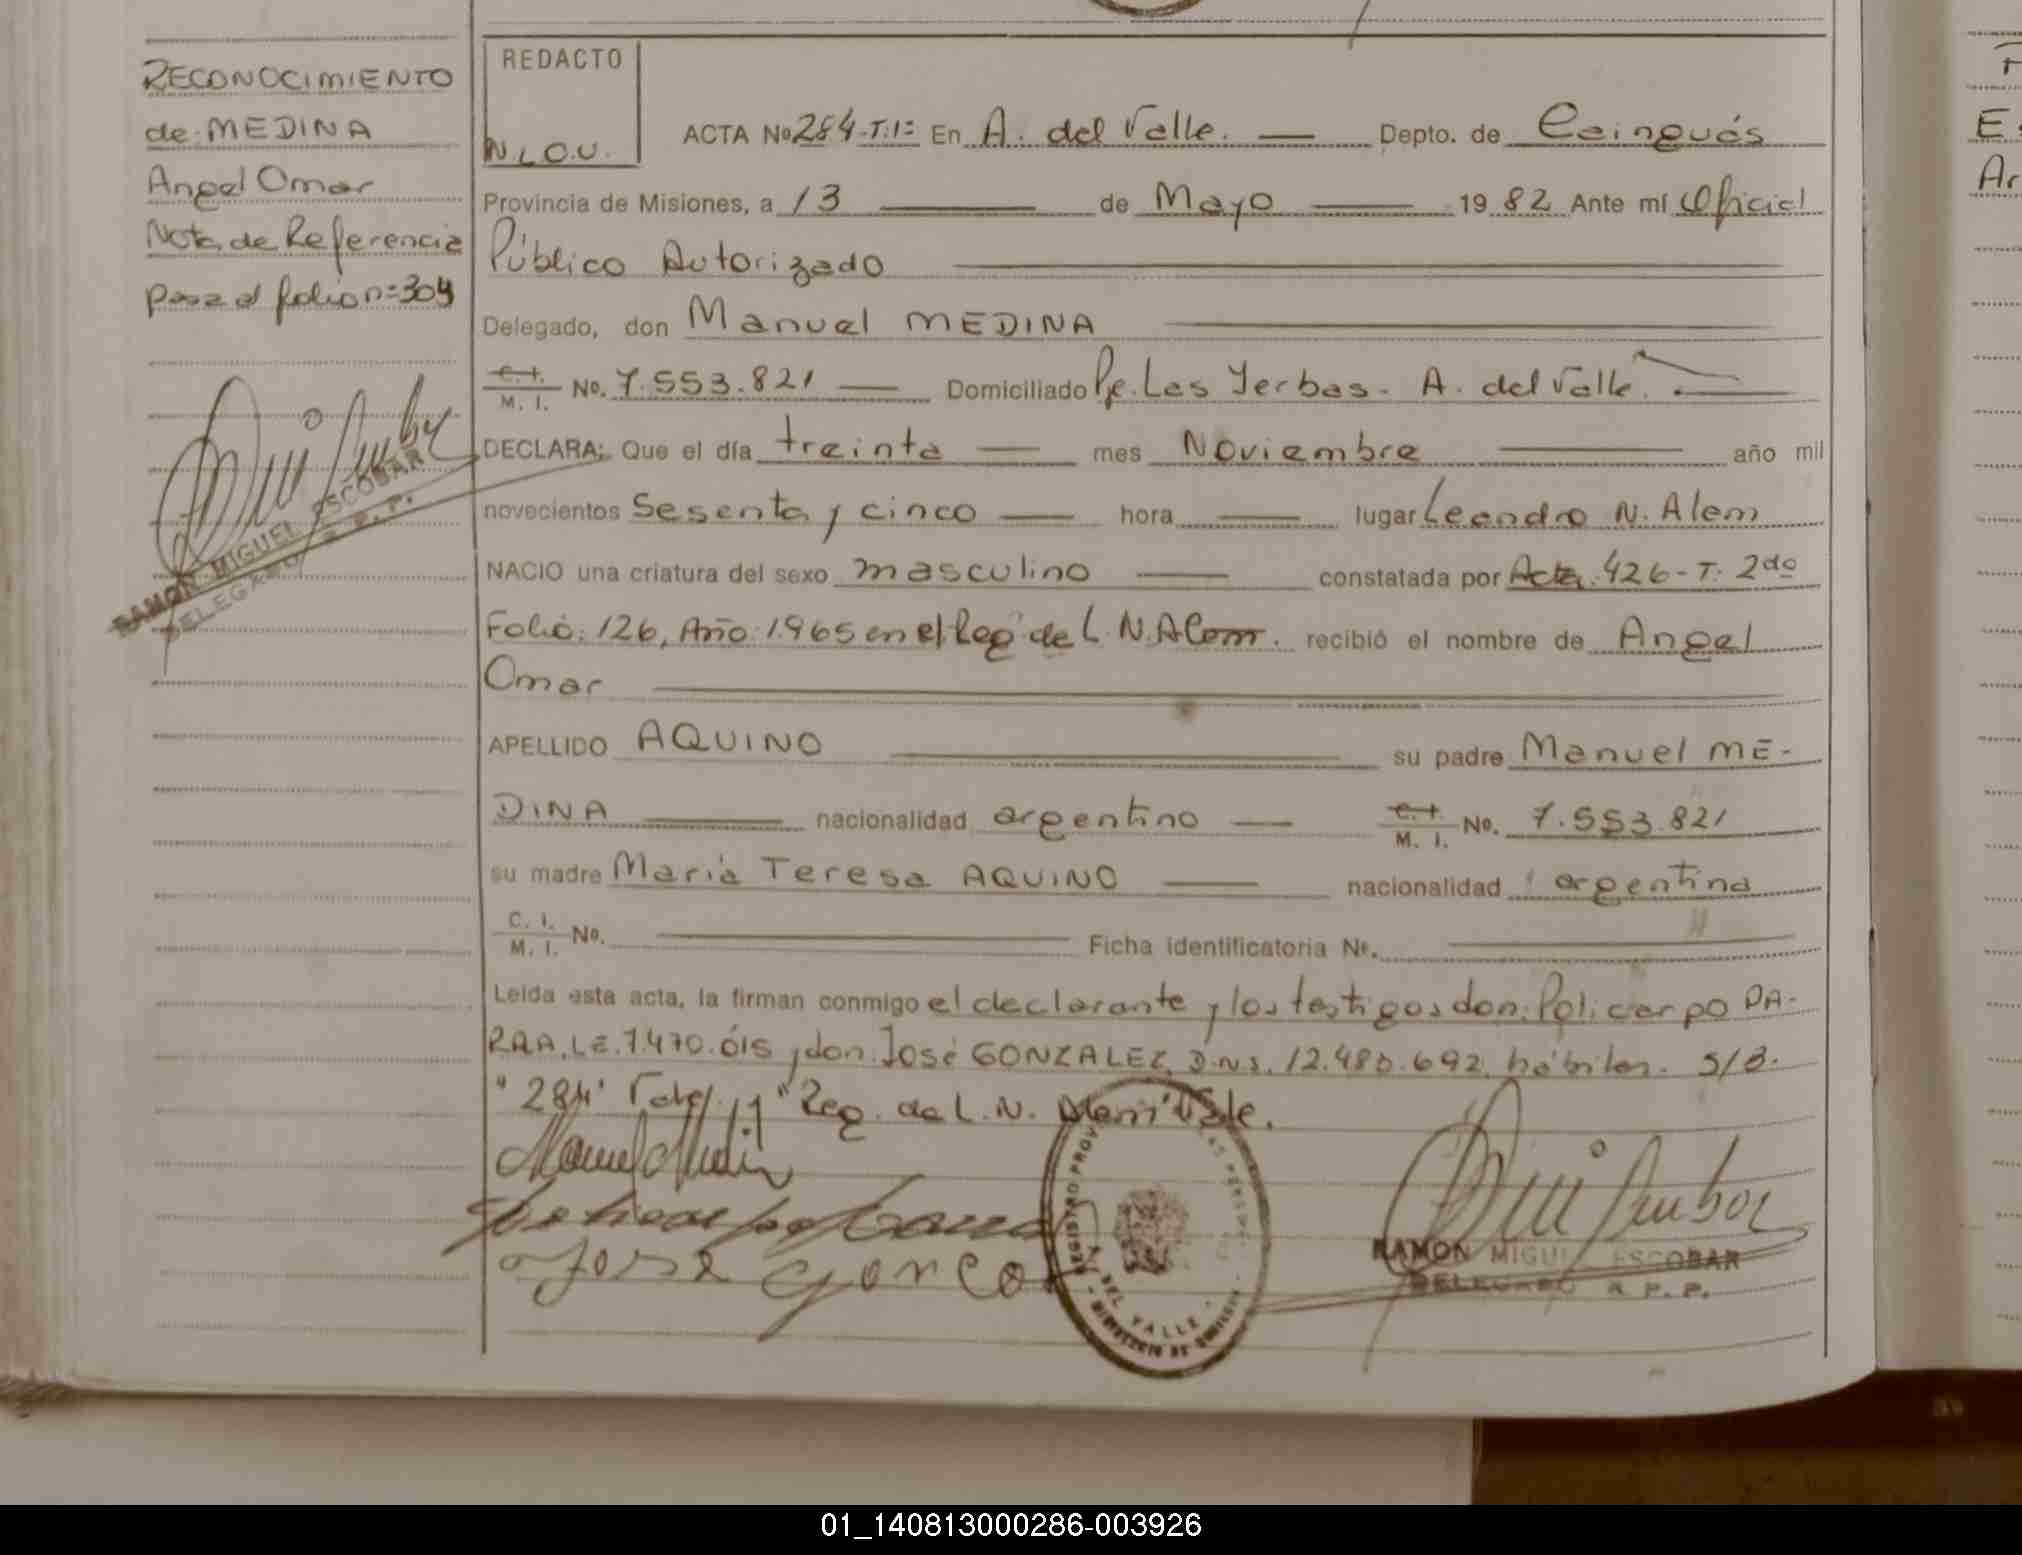 RECONOCIMIENTO
de: MEDINA
Angel Omar
Nota de Referencia
pasa al folio n=304
RAMON MIGUEL ESCOBAR
DELEGADO R. P. P.
REDACTO
N.L.O.U.
ACTA No 284-T.1= En A. del Valle. Depto. de Cainguás
Provincia de Misiones, a 13 de Mayo 19 82 Ante mí Oficial
Público Autorizado
Delegado, don Manuel MEDINA
C. I. M. I. No. 7.553.821 Domiciliado Pje. Las Yerbas - A. del Valle.
DECLARA: Que el día treinta mes Noviembre año mil
novecientos Sesenta y cinco hora lugar Leandro N. Alem
NACIO una criatura del sexo masculino constatada por Acta. 426-T: 2do
Folio: 126, Año: 1965 en el Reg de L. N. Alem. recibió el nombre de Angel
Omar
APELLIDO AQUINO su padre Manuel ME-
DINA nacionalidad argentino C. I. M. I. No. 7.553.821
su madre María Teresa AQUINO nacionalidad argentina
C. I. M. I. No. Ficha identificatoria No.
Leída esta acta, la firman conmigo el declarante y los testigos don: Policarpo PA-
RRA, L.E. 7.470.015 y don: José GONZALEZ, D.N.I. 12.480.692, hábiles. S/B.
"284" "Reg. de L. N. Alem" Vale.
A. DEL VALLE
RAMON MIGUEL ESCOBAR
DELEGADO R. P. P.
01_140813000286-003926